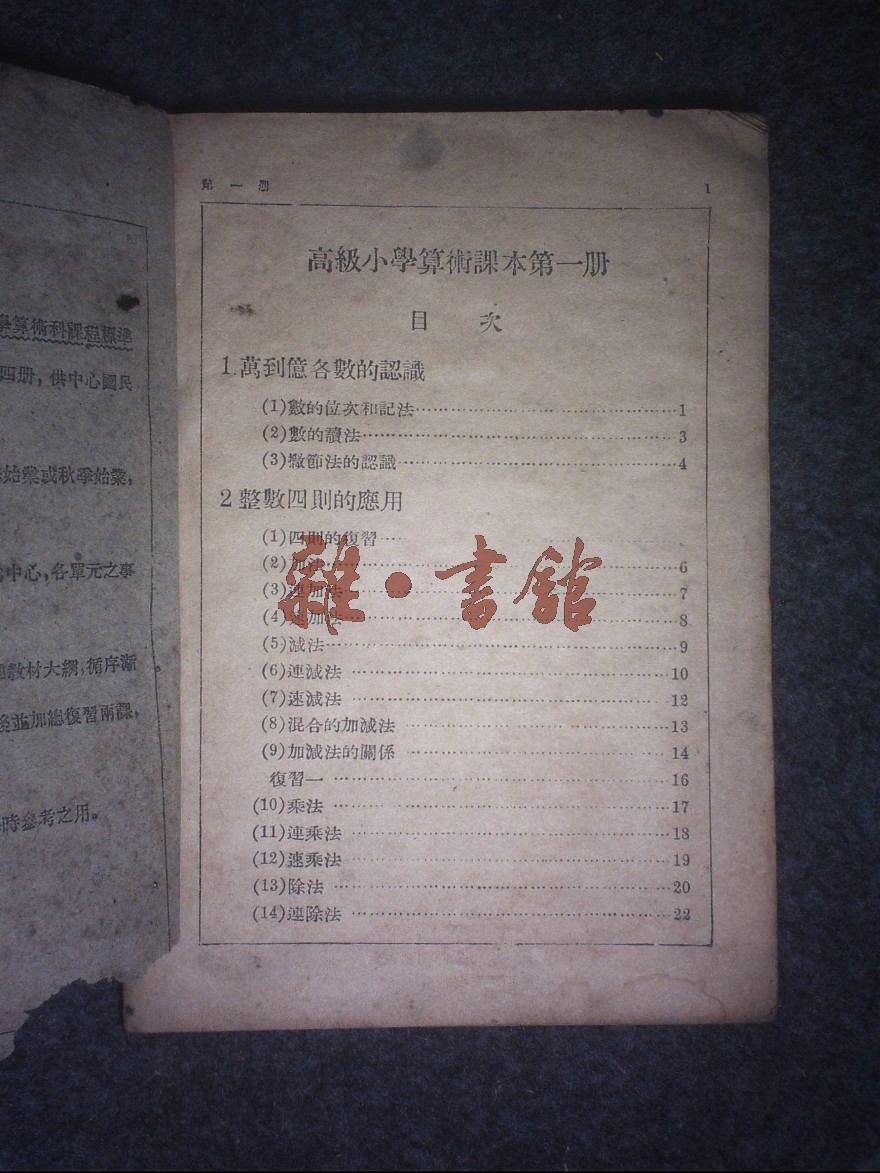 學算術科課程標準
四册，供中心國民
始業或秋季始業，
中心，各單元之事
教材大綱，循序漸
並加總復習兩課，
時參考之用。
第一册 1
高級小學算術課本第一册
目 次
1.萬到億各數的認識
(1)數的位次和記法……1
(2)數的讀法……3
(3)撇節法的認識……4
2 整數四則的應用
(1)四則的復習……
(2)加法……6
(3)連加法……7
(4)速加法……8
(5)減法……9
(6)連減法……10
(7)速減法……12
(8)混合的加減法……13
(9)加減法的關係……14
復習一……16
(10)乘法……17
(11)連乘法……18
(12)速乘法……19
(13)除法……20
(14)連除法……22
雜·書館